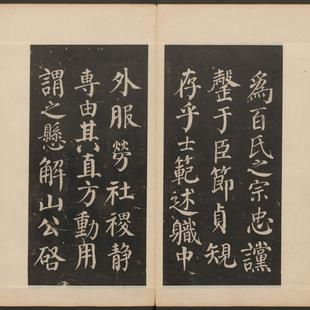 爲百氏之宗忠讜
罄于臣節貞規
存乎士範述軄中
外服勞社稷静
專由其直方動用
謂之懸解山公啓